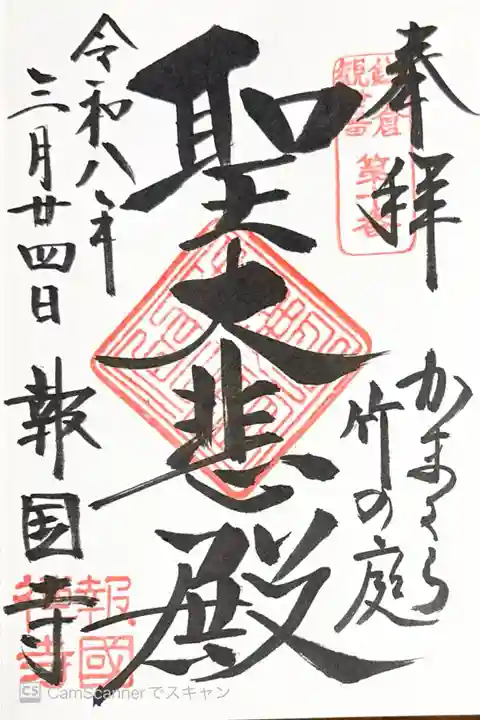 奉拝
かまくら
竹の庭
聖大悲殿
令和八年
三月廿四日
報国寺
鎌倉
観音
第十番
報國
禅寺
CS CamScannerでスキャン